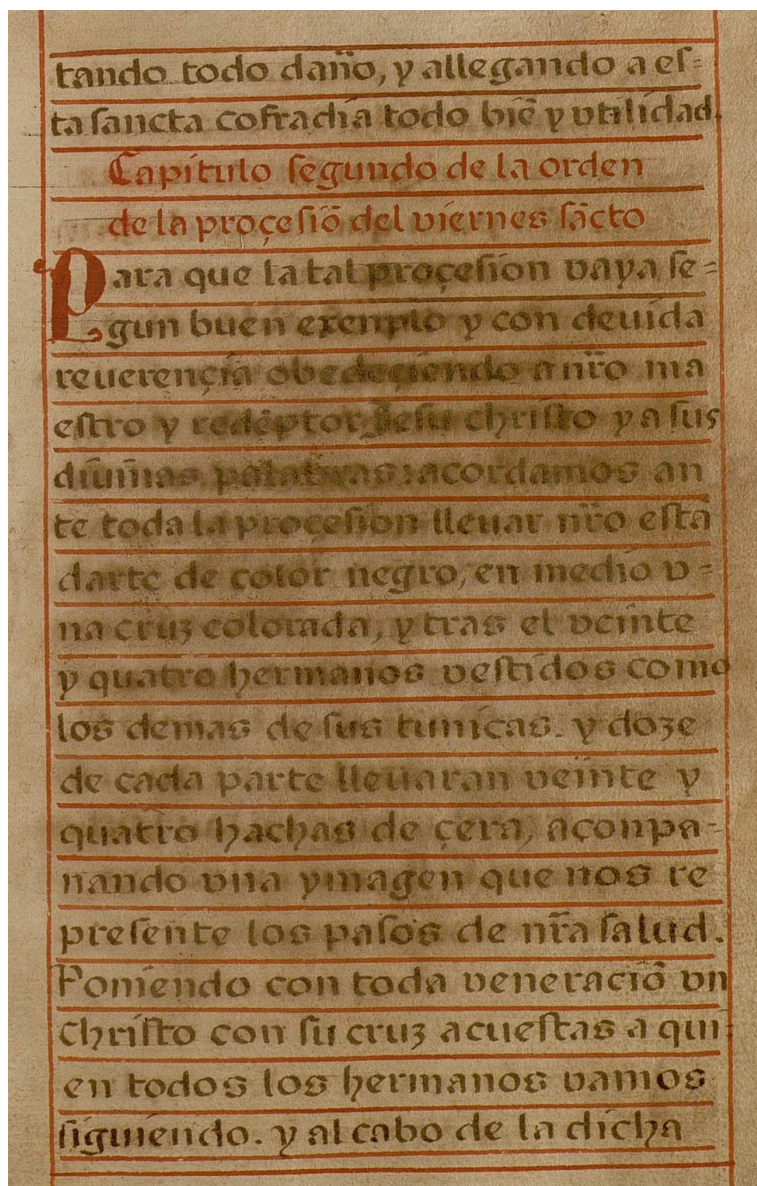 tando todo daño, y allegando a eſ=
ta ſancta cofradia todo biẽ y vtilidad.
Capitulo ſegundo de la orden
de la proçeſiõ del viernes ſãcto
Para que la tal proçeſion vaya ſe=
gun buen exenplo y con deuida
reuerençia obedeçiendo a nr̃o ma
eſtro y redẽptor Jeſu chriſto y a ſus
diuinas palabras: acordamos an
te toda la proçeſion lleuar nr̃o eſtã
darte de color negro, en medio v=
na cruz colorada, y tras el veinte
y quatro hermanos veſtidos como
los demas de ſus tunicas. y doze
de cada parte lleuaran veinte y
quatro hachas de çera, aconpa-
nando vna ymagen que nos re
preſente los paſos de nr̃a ſalud.
Poniendo con toda veneraciõ vn
Chriſto con su cruz acueſtas a qui-
en todos los hermanos vamos
ſiguiendo. y al cabo de la dicha